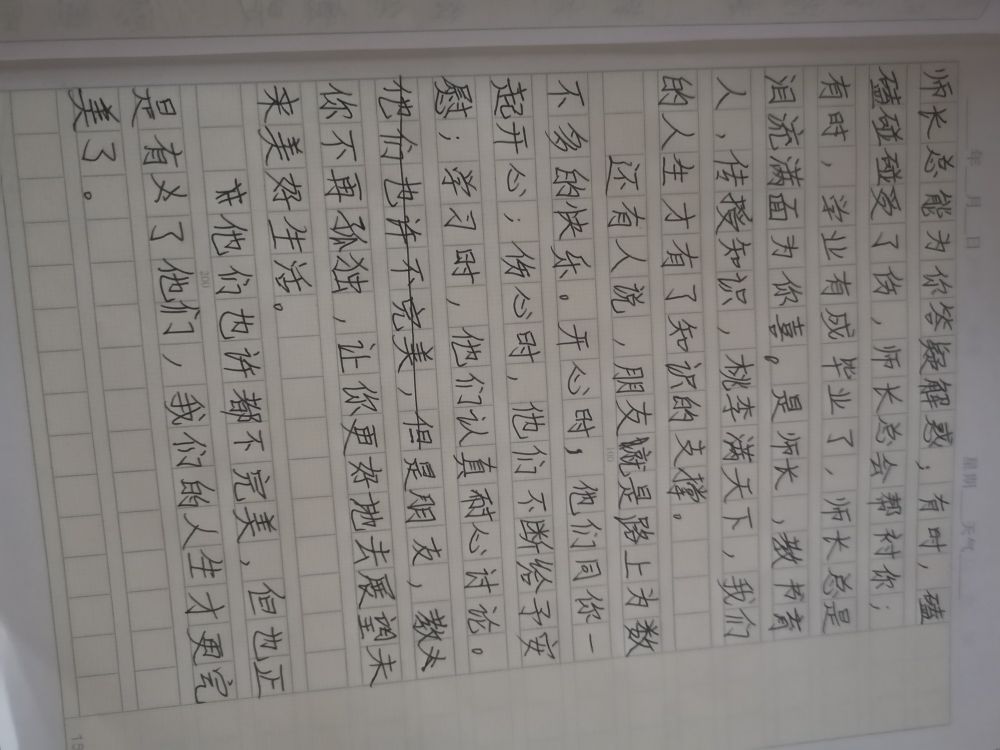 年 月 日 星期 天气
师长总能为你答疑解惑，有时，磕
磕碰碰受了伤，师长总会帮衬你；
有时，学业有成毕业了，师长总是
泪流满面为你喜。是师长，教书育
人，传授知识，桃李满天下，我们
的人生才有了知识的支撑。
还有人说，朋友就是路上为数
不多的快乐。开心时，他们同你一
起开心；伤心时，他们不断给予安
慰；学习时，他们认真耐心讨论。
他们也许不完美，但是朋友，教
你不再孤独，让你更好地去展望未
来美好生活。
他们也许都不完美，但也正
是有了他们，我们的人生才更完
美了。
100
200